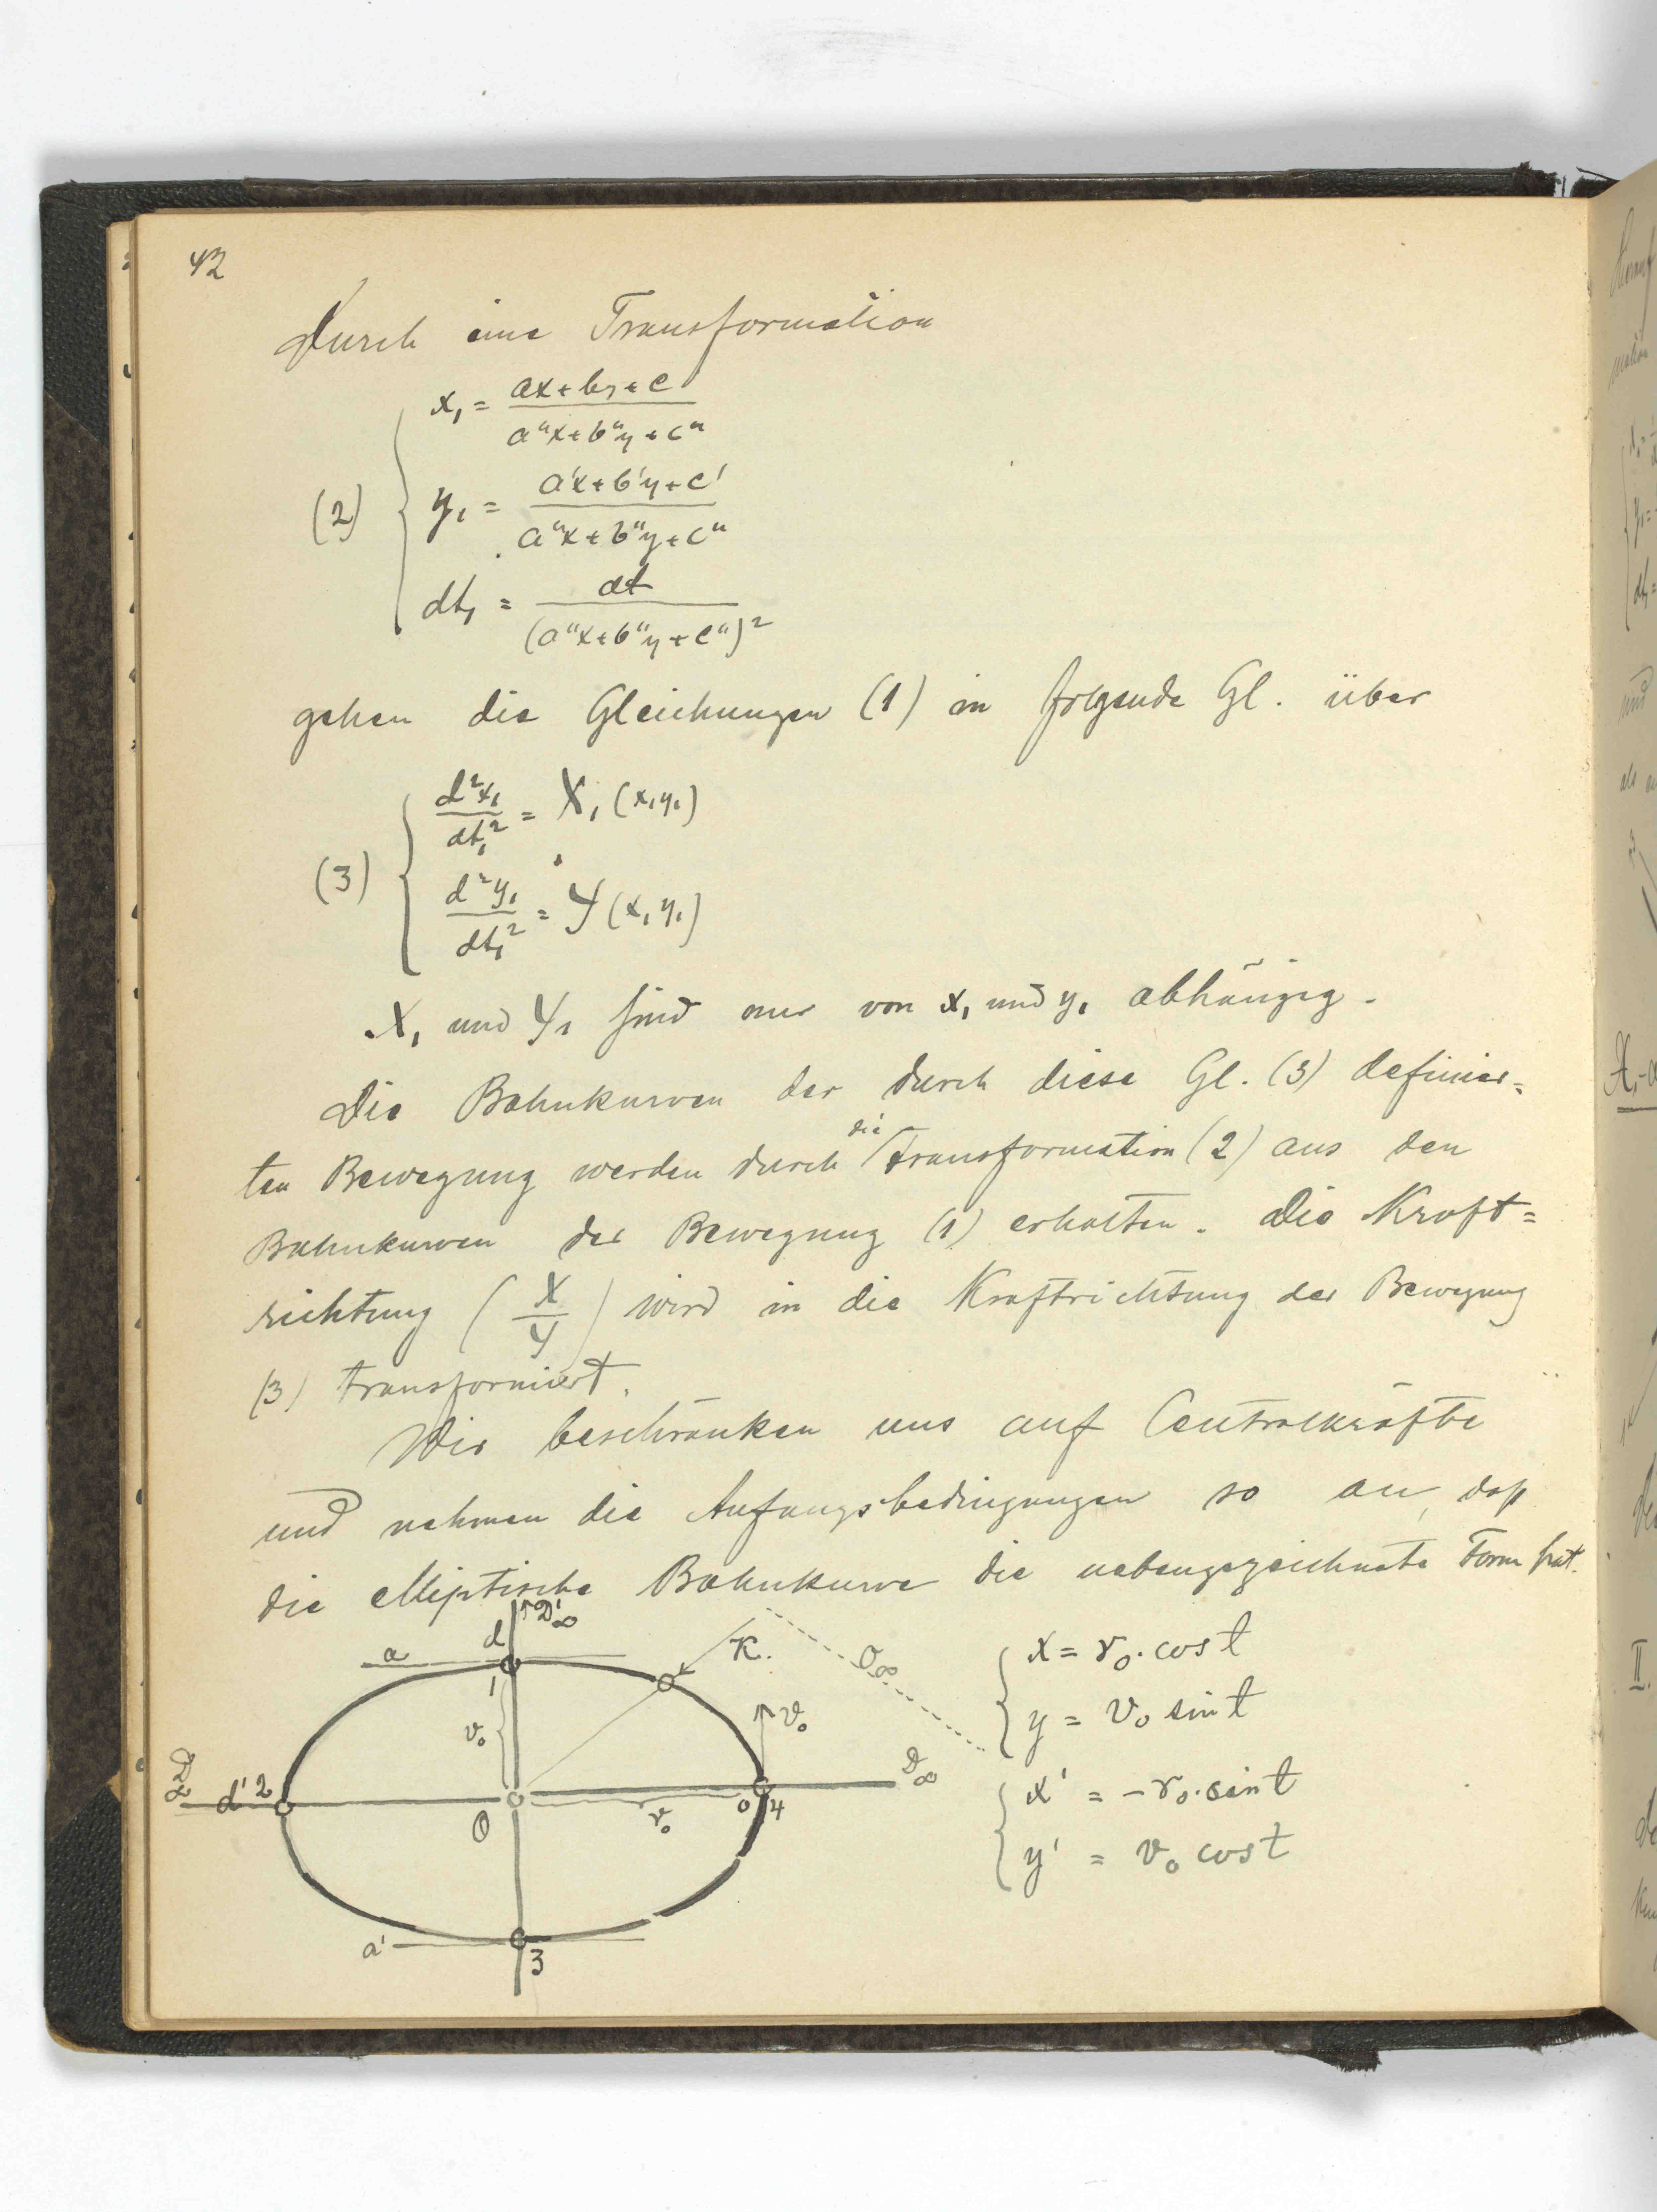 42
Durch eine Transformation
(2) { x₁ = (ax + by + c) / (a"x + b"y + c")
y₁ = (a'x + b'y + c') / (a"x + b"y + c")
dt₁ = dt / (a"x + b"y + c")²
gehen die Gleichungen (1) in folgende Gl. über
(3) { d²x₁ / dt₁² = X₁ (x₁y₁)
d²y₁ / dt₁² = Y (x₁y₁)
X₁ und Y₁ sind nur von x₁ und y₁ abhängig.
Die Bahnkurven der durch diese Gl. (3) definier=
ten Bewegung werden durch die Transformation (2) aus den
Bahnkurven der Bewegung (1) erhalten. Die Kraft=
richtung (X/Y) wird in die Kraftrichtung der Bewegung
(3) transformiert.
Wir beschränken uns auf Centralkräfte
und nehmen die Anfangsbedingungen so an, daß
die elliptische Bahnkurve die nebengezeichnete Form hat.
d D'∞
a 1 K. O∞
v₀ v₀
D∞ d' 2 O r₀ 0 4 D∞
a' 3
{ x = r₀ · cos t
y = v₀ sin t
{ x' = - r₀ · sin t
y' = v₀ cos t